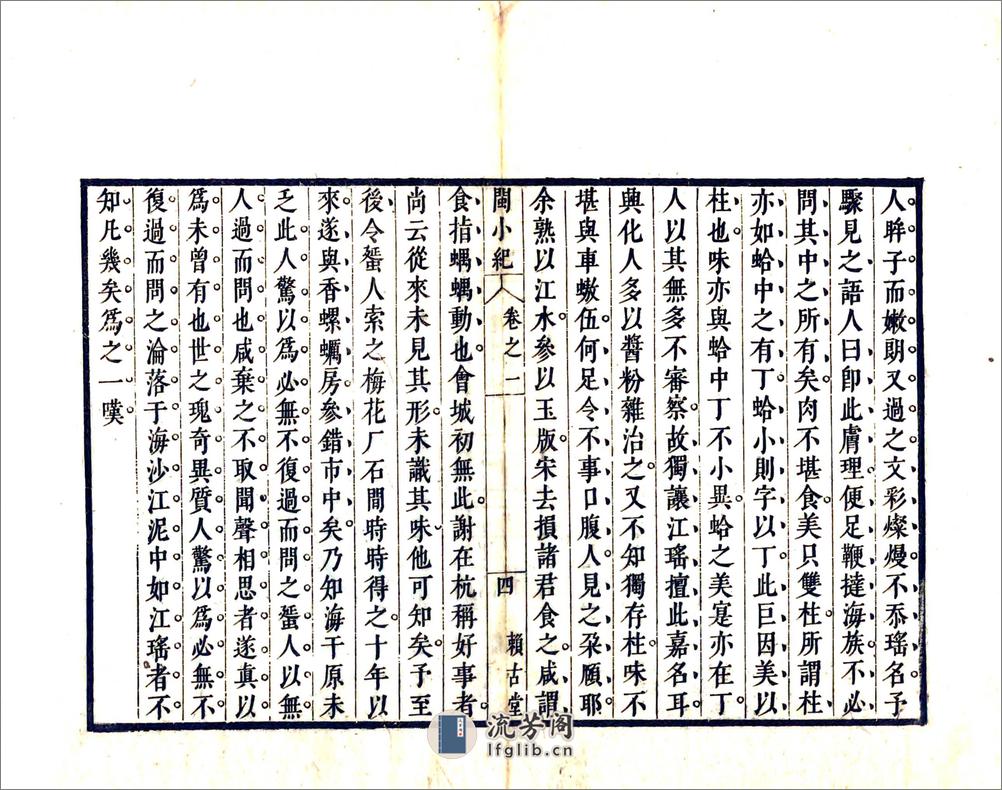 人眸子而嫩朗又過之文彩燦熳不忝瑤名予
驟見之語人曰卽此膚理便足鞭撻海族不必
問其中之所有矣肉不堪食美只雙柱所謂柱
亦如蛤中之有丁蛤小則字以丁此巨因美以
柱也味亦與蛤中丁不小異蛤之美寔亦在丁
人以其無多不審察故獨讓江瑤擅此嘉名耳
興化人多以醬粉雜治之又不知獨存柱味不
堪與車螯伍何足令不事口腹人見之朶頤耶
余熟以江水參以玉版宋去損諸君食之咸謂
閩小紀 卷之二 四 賴古堂
食指蝺蝺動也會城初無此謝在杭稱好事者
尚云從來未見其形未識其味他可知矣予至
後令蜑人索之梅花厂石間時時得之十年以
來遂與香螺蠣房參錯市中矣乃知海干原未
乏此人驚以爲必無不復過而問之蜑人以無
人過而問也咸棄之不取聞聲相思者遂真以
爲未曾有也世之瑰奇異質人驚以爲必無不
復過而問之淪落于海沙江泥中如江瑤者不
知凡幾矣爲之一嘆
流芳阁
lfglib.cn